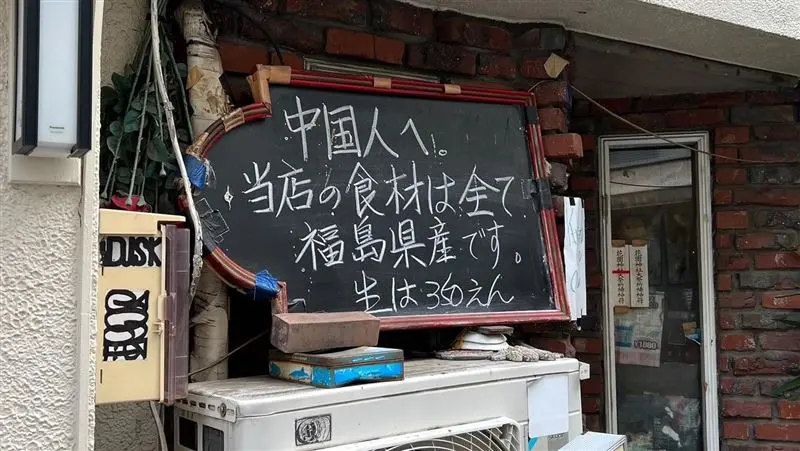 中国人へ。
当店の食材は全て
福島県産です。
生は350えん
DUSK
Panasonic
¥1080